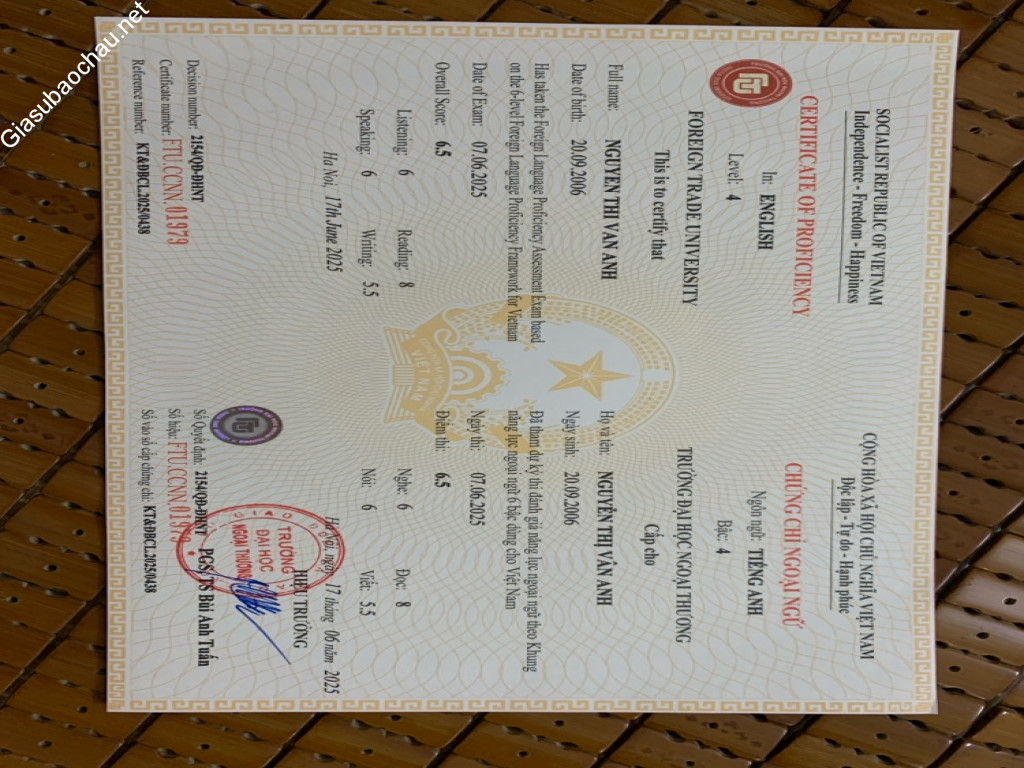 Giasubaochau.net
SOCIALIST REPUBLIC OF VIETNAM
Independence - Freedom - Happiness
CERTIFICATE OF PROFICIENCY
In: ENGLISH
Level: 4
FOREIGN TRADE UNIVERSITY
This is to certify that
Full name: NGUYEN THI VAN ANH
Date of birth: 20.09.2006
Has taken the Foreign Language Proficiency Assessment Exam based
on the 6-level Foreign Language Proficiency Framework for Vietnam
Date of Exam: 07.06.2025
Overall Score: 6.5
Listening: 6 Reading: 8
Speaking: 6 Writing: 5.5
Ha Noi, 17th June 2025
Decision number: 2154/QĐ-ĐHNT
Certificate number: FTU.CCNN.01979
Reference number: KT&ĐBCL.2025/0438
CỘNG HÒA XÃ HỘI CHỦ NGHĨA VIỆT NAM
Độc lập - Tự do - Hạnh phúc
CHỨNG CHỈ NGOẠI NGỮ
Ngôn ngữ: TIẾNG ANH
Bậc: 4
TRƯỜNG ĐẠI HỌC NGOẠI THƯƠNG
Cấp cho
Họ và tên: NGUYỄN THỊ VÂN ANH
Ngày sinh: 20.09.2006
Đã tham dự kỳ thi đánh giá năng lực ngoại ngữ theo Khung
năng lực ngoại ngữ 6 bậc dùng cho Việt Nam
Ngày thi: 07.06.2025
Điểm thi: 6.5
Nghe: 6 Đọc: 8
Nói: 6 Viết: 5.5
Hà Nội, ngày 17 tháng 06 năm 2025
HIỆU TRƯỞNG
TRƯỜNG
ĐẠI HỌC
NGOẠI THƯƠNG
PGS, TS Bùi Anh Tuấn
Số Quyết định: 2154/QĐ-ĐHNT
Số hiệu: FTU.CCNN.01979
Số vào sổ cấp chứng chỉ: KT&ĐBCL.2025/0438
VIỆT NAM